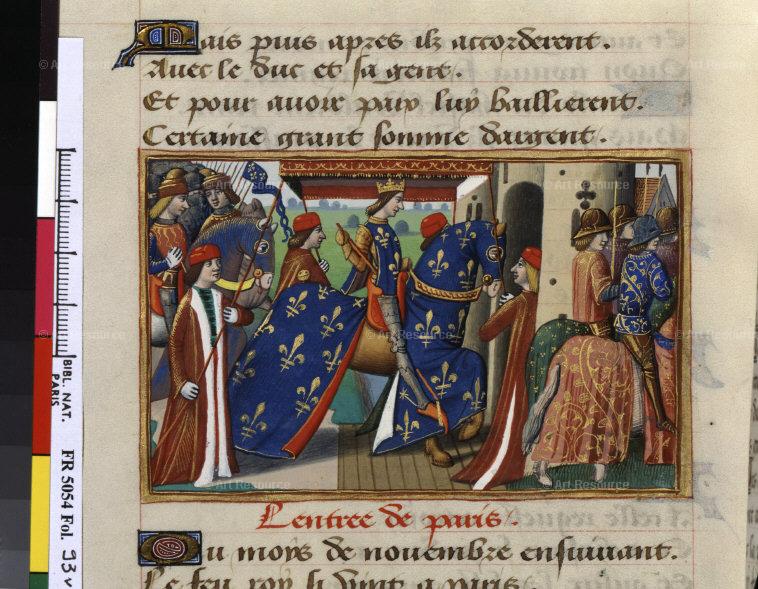 Mais puis apres ilz accorderent.
Avec le duc et sa gent.
Et pour avoir paix luy baillierent.
Certaine grant somme dargent.
Lentree de paris.
Ou moys de novembre ensuivant.
Le feu roy si vint a paris.
BIBL. NAT.
PARIS
FR 5054 Fol. 93v
Art Resource